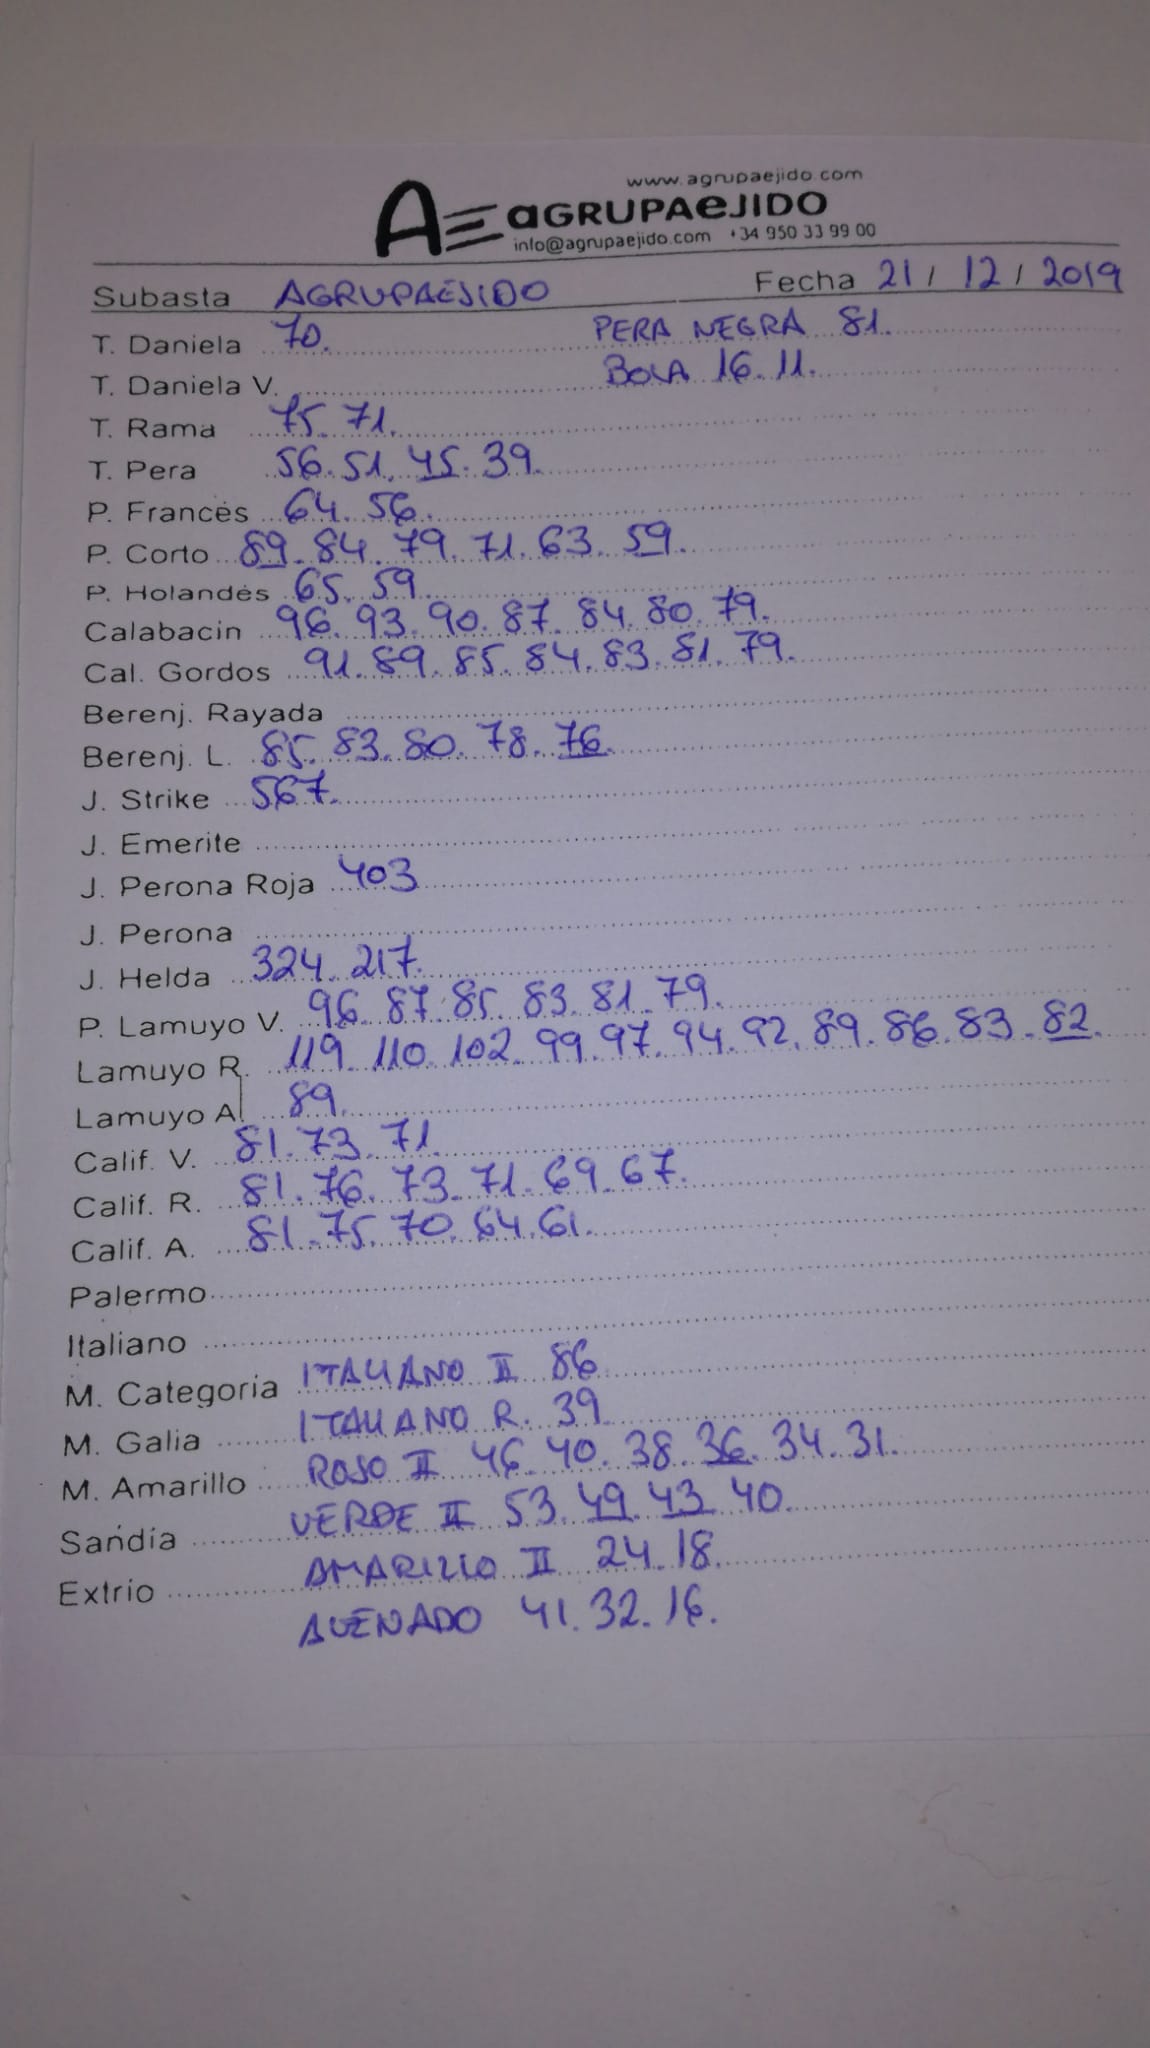 www.agrupaejido.com
AE aGRUPAeJIDO
info@agrupaejido.com +34 950 33 99 00
Subasta AGRUPAEJIDO Fecha 21 / 12 / 2019
T. Daniela 70. PERA NEGRA 81.
T. Daniela V. BOLA 16.11.
T. Rama 75.71.
T. Pera 56.51.45.39.
P. Francés 64.56.
P. Corto 89.84.79.71.63.59.
P. Holandés 65.59.
Calabacin 96.93.90.87.84.80.79.
Cal. Gordos 91.89.85.84.83.81.79.
Berenj. Rayada
Berenj. L. 85.83.80.78.76.
J. Strike 567.
J. Emerite
J. Perona Roja 403
J. Perona
J. Helda 324.217.
P. Lamuyo V. 96.87.85.83.81.79.
Lamuyo R. 119.110.102.99.97.94.92.89.86.83.82.
Lamuyo A. 89.
Calif. V. 81.73.71.
Calif. R. 81.76.73.71.69.67.
Calif. A. 81.75.70.64.61.
Palermo
Italiano
M. Categoria ITALIANO II 86
M. Galia ITALIANO R. 39
M. Amarillo ROJO II 46.40.38.36.34.31.
Sandía VERDE II 53.49.43.40.
Extrio AMARILLO II 24.18.
ALENADO 41.32.16.